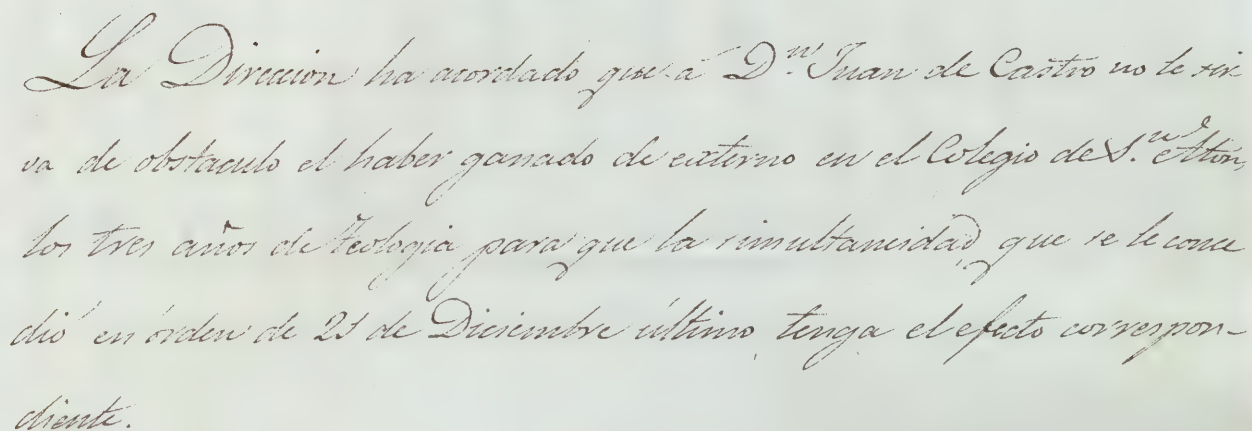 La Direccion ha acordado que á D.n Juan de Castro no le sir
va de obstaculo el haber ganado de externo en el Colegio de S.n
los tres años de Teologia para que la simultaneidad, que se le conce
dió en órden de 21 de Diciembre último tenga el efecto correspon-
diente.